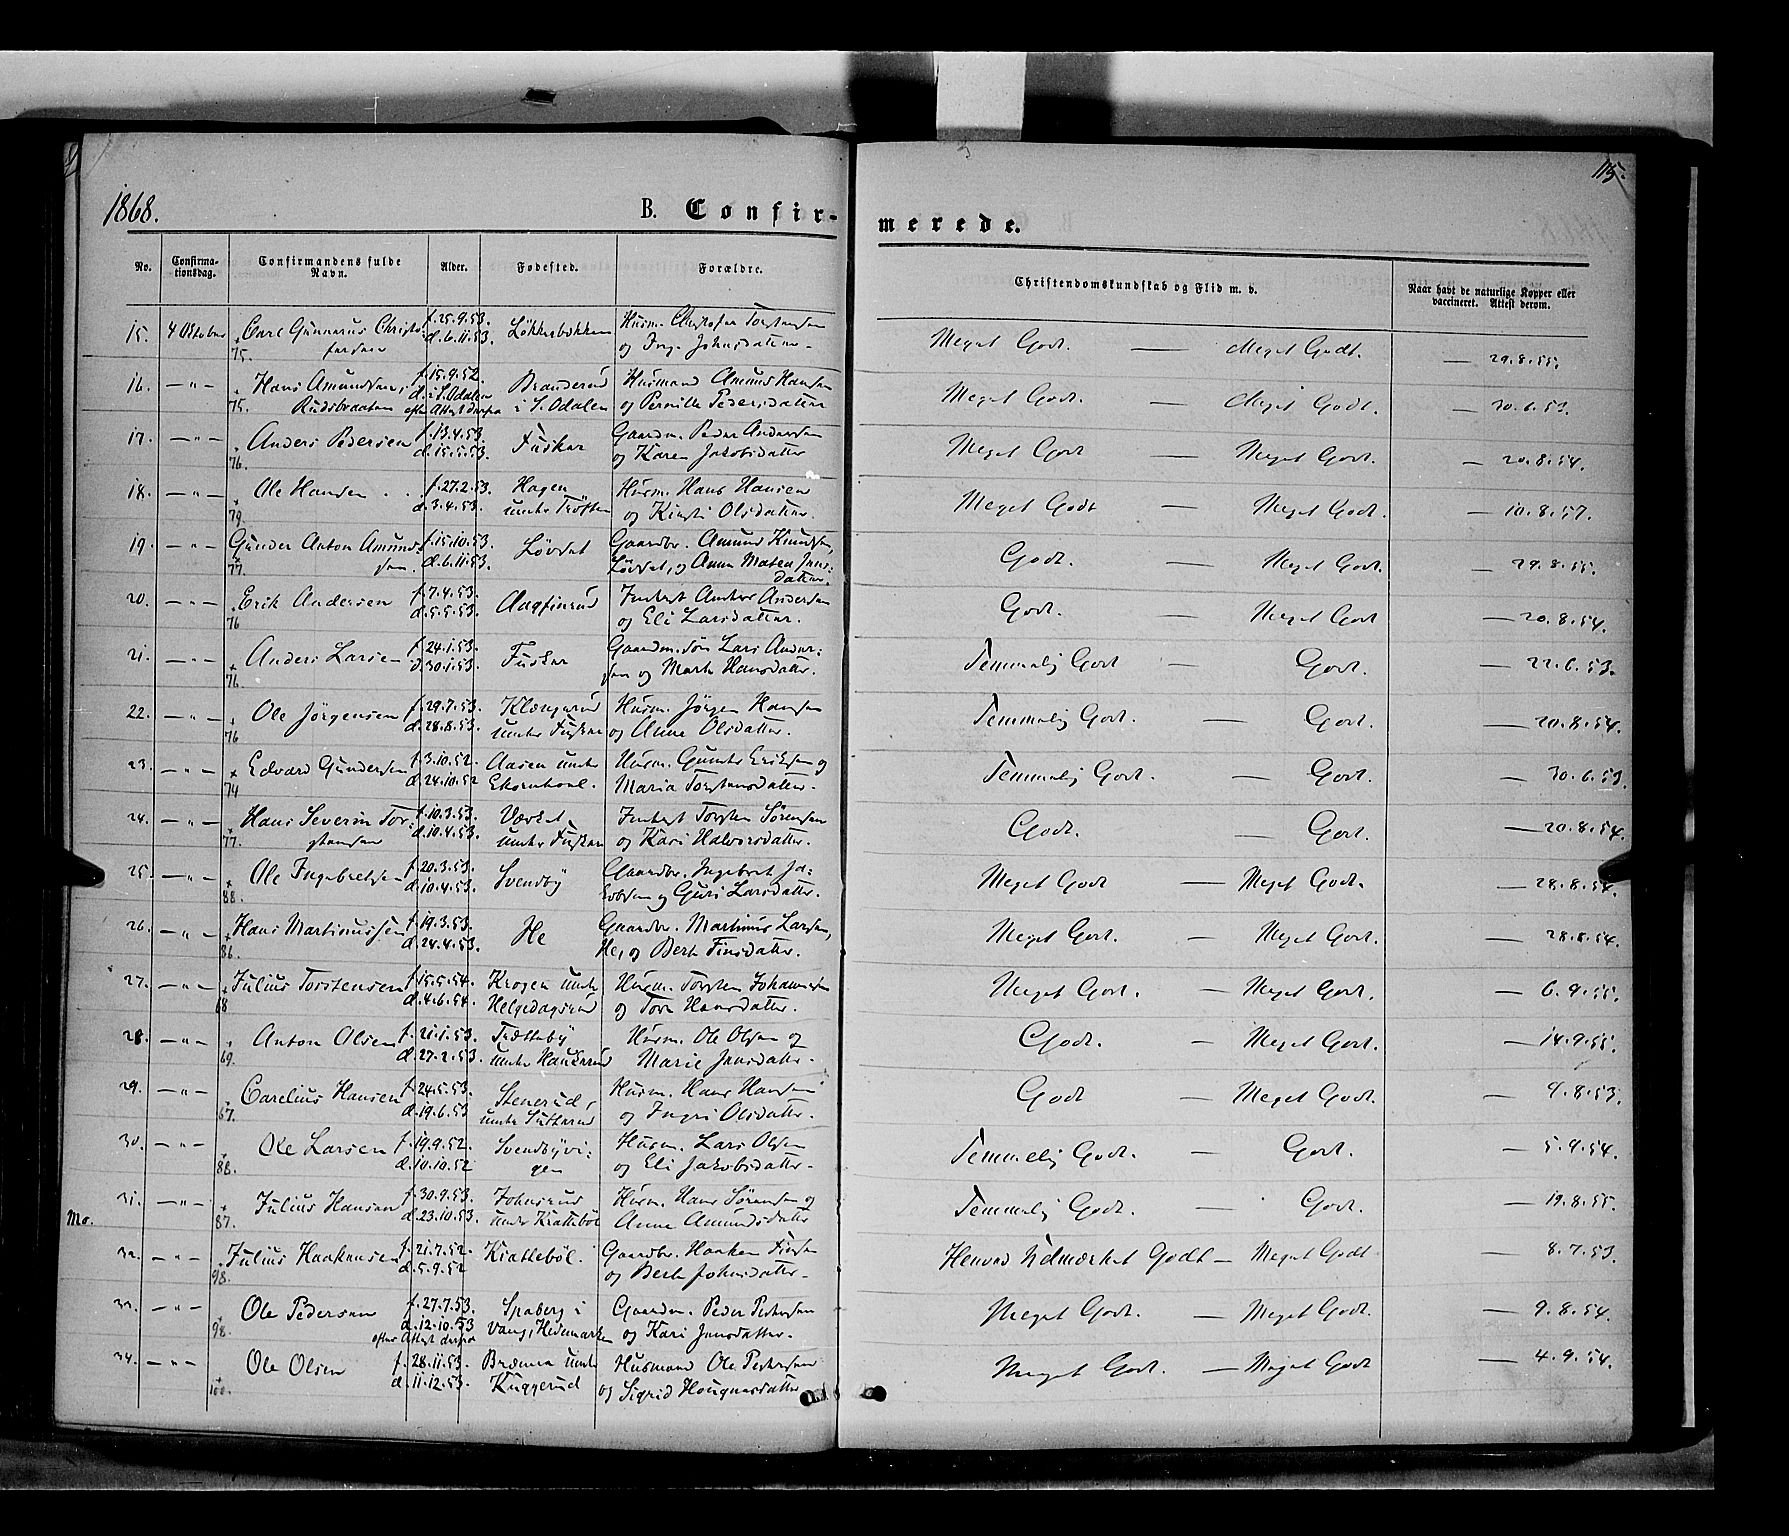 1868.
B. Confir-
merede.
115.
No.
Confirma-
tionsdag.
Confirmandens fulde
Navn.
Alder.
Fødested.
Forældre.
Christendomskundskab og Flid m. v.
Naar havt de naturlige Kopper eller
vaccineret. Attest derom.
15. 4 Oktober Carl Gunnarus Christo- f. 25.9.53. Løkkebakken Husm. Christofer Torstensen Meget Godt. — Meget Godt. — 29.8.55.
75. fersen d. 6.11.53. og Ing. Johnsdatter.
16. — " — Hans Amundsen, f. 15.9.52. Branderud Husmand Amund Hansen Meget Godt. — Meget Godt. — 30.6.53.
75. Rudsbraaten d. i S. Odalen i S. Odalen og Pernille Pedersdatter
efter Attest derfra
17. — " — Anders Pedersen f. 13.4.53. Fuskar Gaardm. Peder Andersen Meget Godt — Meget Godt. — 20.8.54.
76. d. 15.5.53. og Karen Jakobsdatter
18. — " — Ole Hansen f. 27.2.53. Hagen Husm. Hans Hansen Meget Godt — Meget Godt. — 10.8.57.
79. d. 3.4.53. under Trøften og Kirsti Olsdatter.
19. — " — Gunder Anton Amund- f. 15.10.53. Løvdat Gaardbr. Amund Knudsen, Godt. — Meget Godt. — 29.8.55.
77. sen. d. 6.11.53. Løvdat, og Anne Maten Jens-
datter.
20. — " — Erik Andersen f. 7.4.53. Aagfinrud Inderst Anders Andersen Godt. — Meget Godt. — 20.8.54.
76 d. 5.5.53. og Eli Larsdatter.
21. — " — Anders Larsen f. 24.1.53. Fuskar Gaardm. Søn Lars Ander- Temmelig Godt — Godt. — 22.6.53.
76. d. 30.1.53. sen og Marte Hansdatter.
22. — " — Ole Jörgensen f. 29.7.53. Klængsrud Husm. Jörgen Hansen Temmelig Godt. — Godt. — 20.8.54.
76 d. 28.8.53. under Fuskar og Anne Olsdatter.
23. — " — Edvard Gundersen f. 3.10.52. Aasen under Husm. Gunder Eriksen og Temmelig Godt. — Godt. — 30.6.53.
74 d. 24.10.52 Ekornhoel. Maria Torstensdatter.
24. — " — Hans Severin Tor- f. 10.3.53. Værket Inderst Torsten Sörensen Godt. — Godt. — 20.8.54.
77. stensen d. 10.4.53. under Fuskar og Kari Halvorsdatter.
25. — " — Ole Ingebretsen f. 20.3.53. Svendby Gaardbr. Ingebret Ja- Meget Godt — Meget Godt. — 28.8.54.
88. d. 10.4.53. kobsen og Guri Larsdatter.
26. — " — Hans Martinussen f. 19.3.53. He Gaardbr. Martinus Larsen, Meget Godt. — Meget Godt. — 28.8.54.
86. d. 24.4.53. He, og Berte Finsdatter.
27. — " — Julius Torstensen f. 15.5.54. Krogen under Husm. Torsten Johannesen Meget Godt. — Meget Godt. — 6.9.55.
68 d. 4.6.54. Helgedagsrud og Tore Hansdatter.
28. — " — Anton Olsen f. 21.1.53. Trætteby Husm. Ole Olsen og Godt. — Meget Godt. — 14.9.55.
69. d. 27.2.53. under Haukerud Marie Jensdatter.
29. — " — Carelius Hansen f. 24.5.53. Stenerud, Husm. Hans Hansen Godt — Meget Godt. — 9.8.53.
67. d. 19.6.53 under Sutterud og Ingri Olsdatter.
30. — " — Ole Larsen f. 19.9.52. Svendbyvi- Husm. Lars Olsen Temmelig Godt. — Godt. — 5.9.54.
88. d. 10.10.52 gen og Eli Jakobsdatter.
Mo.
31. — " — Julius Hansen f. 30.9.53. Johnsrud Husm. Hans Sörensen og Temmelig Godt. — Godt. — 19.8.55.
87. d. 23.10.53. under Krattebøl Anne Amundsdatter
32. — " — Julius Haakensen f. 21.7.52. Krattebøl. Gaardbr. Haaken Finsen Henved Udmærket Godt — Meget Godt — 8.7.53.
98. d. 5.9.52 og Berte Johnsdatter.
33. — " — Ole Pedersen f. 27.7.53. Spaberg i Gaardm. Peder Pedersen Meget Godt. — Meget Godt. — 9.8.54.
98. d. 12.10.53 Vang, Hedemarken og Kari Jensdatter.
efter Attest derfra
34. — " — Ole Olsen f. 28.11.53. Brænna under Husmand Ole Pedersen Meget Godt. — Meget Godt — 4.9.54.
100. d. 11.12.53. Kuggerud og Sigrid Hougnarsdatter